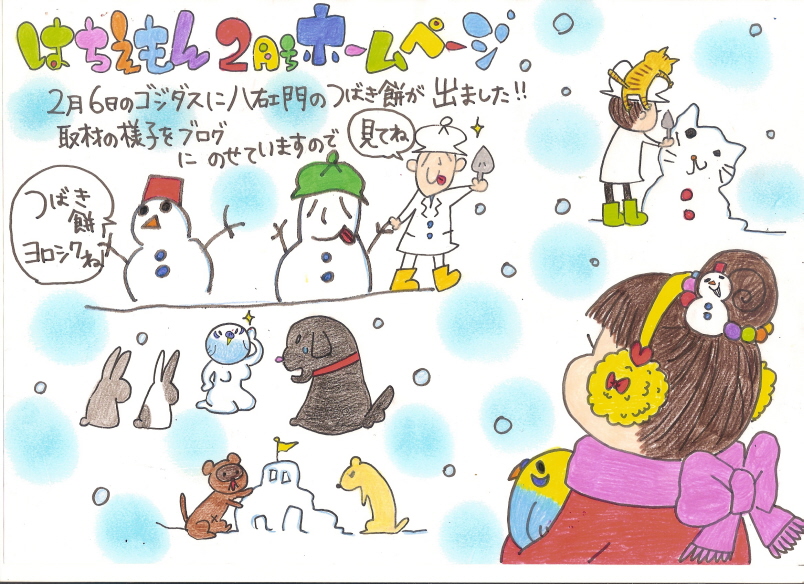 はちえもん 2月号ホームページ
2月6日のゴジダスに八右エ門のつばき餅が 出ました!!
取材の様子をブログ
に のせていますので
見てね
つばき
餅
ヨロシクね